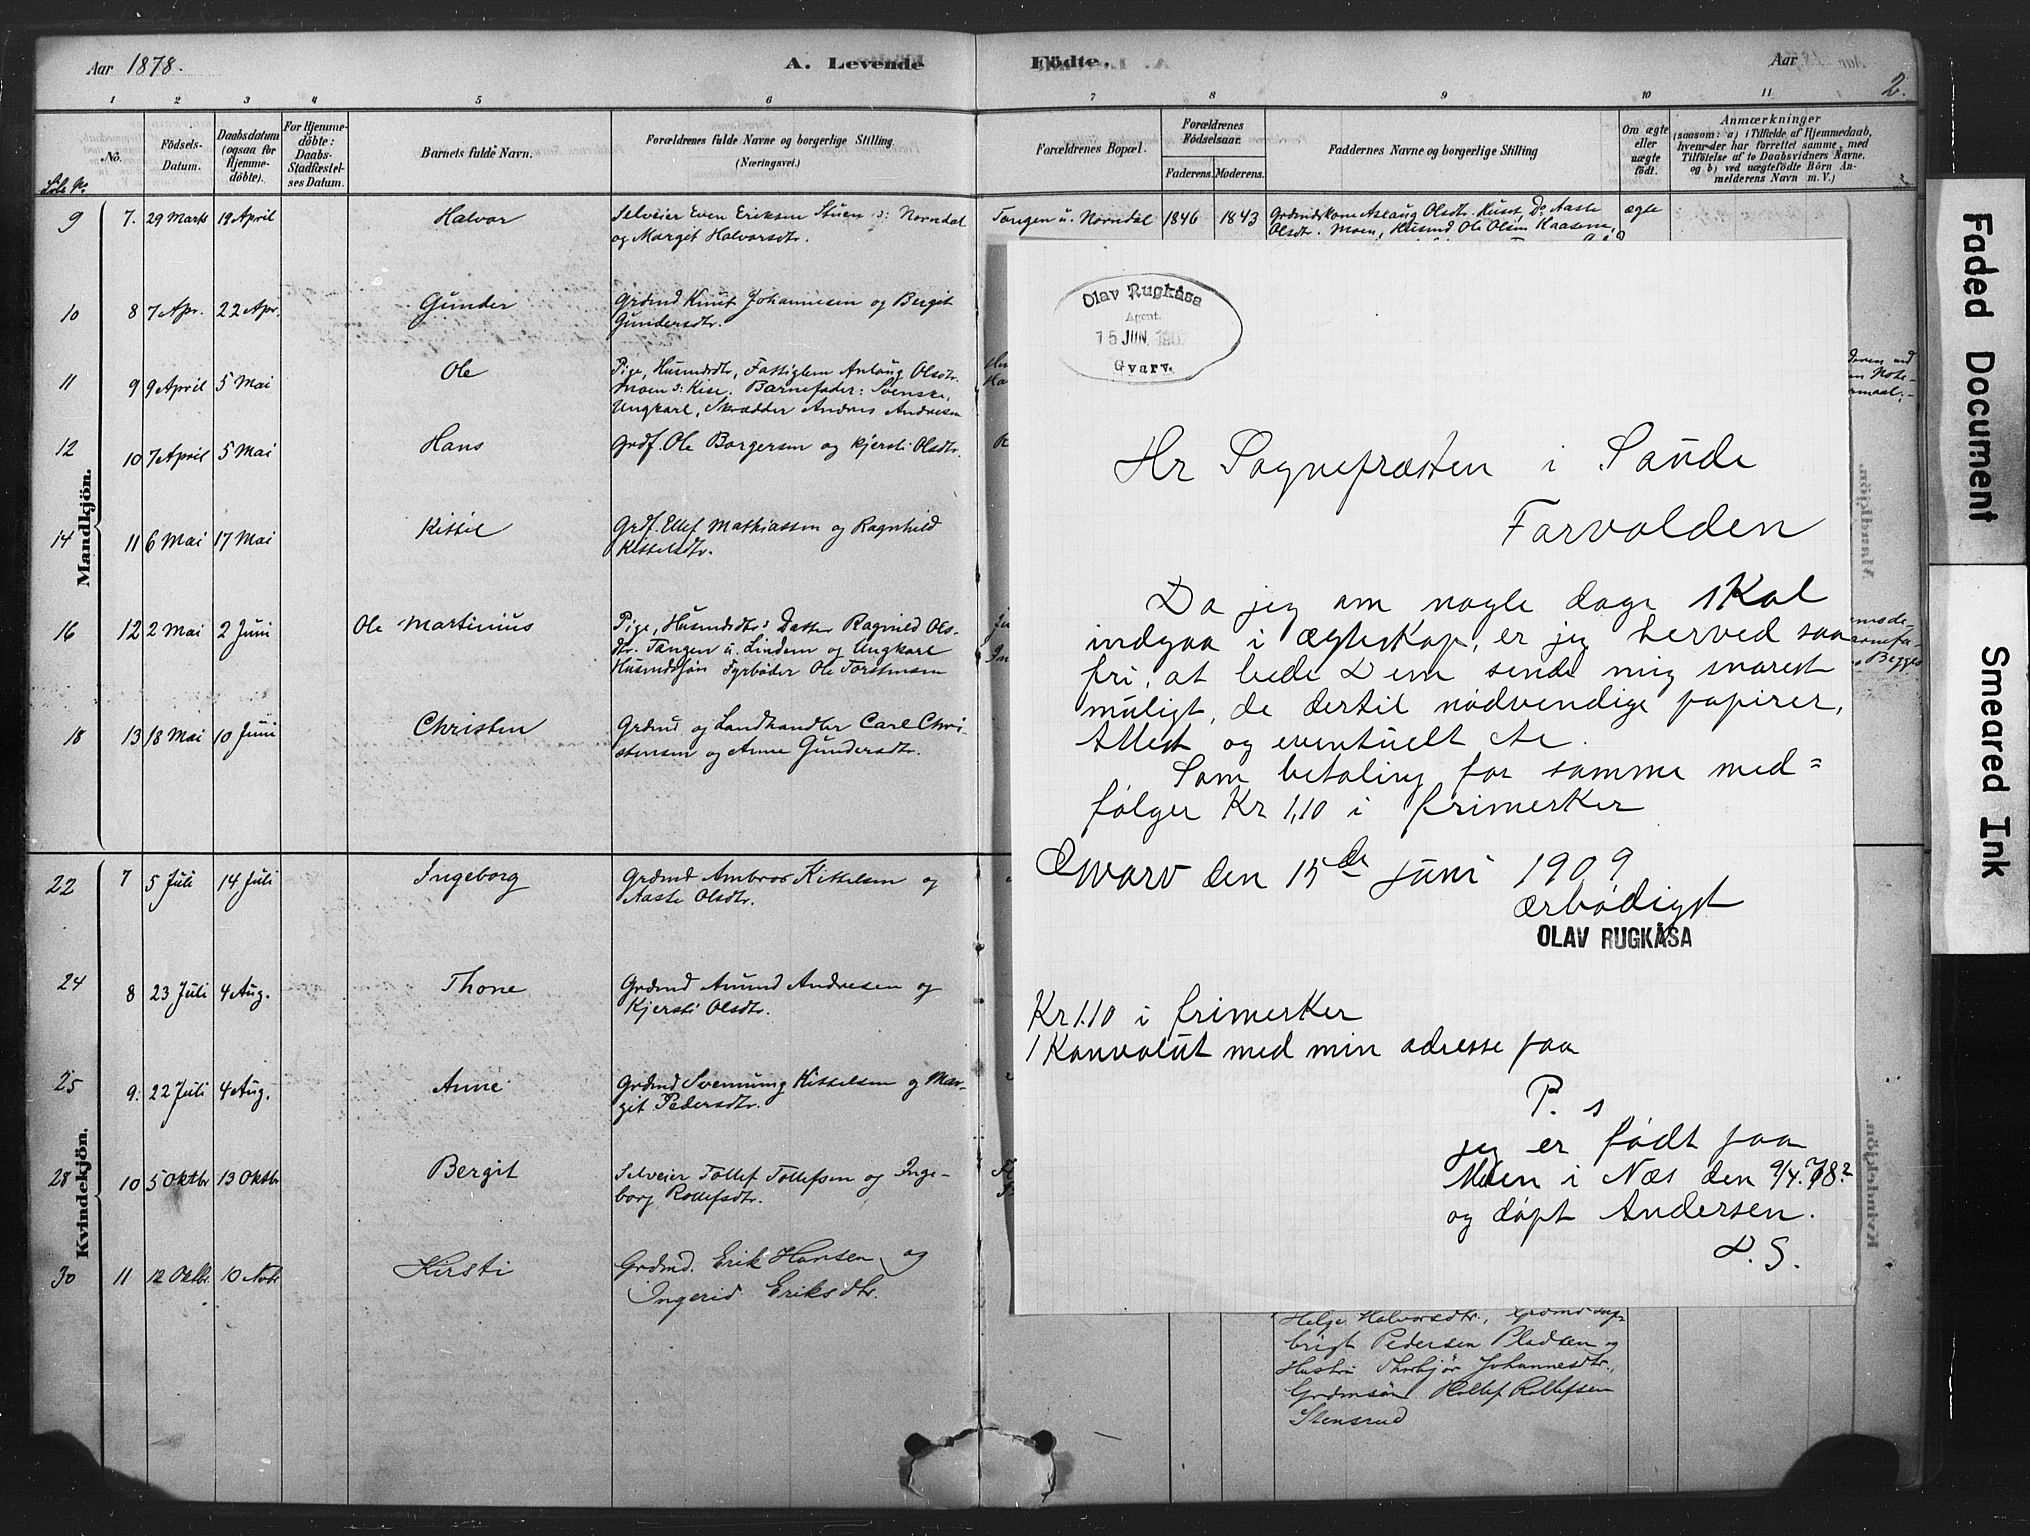 Aar 1878.
A. Levende Födte.
Aar
2.
1 2 3 4 5 6 7 8 9 10 11
Løbe No.
No.
Födsels-Datum.
Daabsdatum (ogsaa for Hjemme-döbte).
For Hjemme-döbte: Daabs-Stadfæstel-ses Datum.
Barnets fulde Navn.
Forældrenes fulde Navne og borgerlige Stilling
(Næringsvei.)
Forældrenes Bopæl.
Forældrenes Födselsaar.
Faderens. Moderens.
Faddernes Navne og borgerlige Stilling
Om ægte eller uægte födt.
Anmærkninger
(saasom: a) i Tilfælde af Hjemmedaab,
hvem der har forrettet samme, med
Tilföielse af to Daabsvidners Navne,
og b) ved uægtefödte Börn An-
melderens Navn m. V.)
Mandkjön.
9 7. 29 Marts 19 April Halvor Selveier Even Eriksen Stuen o: Norndal
og Margit Halvorsdtr.
Tangen u. Norndal 1846 1843 Grdmdskone Aslaug Olsdtr. Kuset, Do Aaste
Olsdtr. Moen, Husmd Ole Olsen Haasene,
ægte
10 8 7 Apr. 22 Apr. Gunder Grdmd Knut Johannesen og Bergit
Gundersdtr.
11 9 9 April 5 Mai Ole Pige, Husmdsdtr, Fattiglem Anlaug Olsdtr.
Moen o: Kise. Barnefader: Svenske,
Ungkarl, Skrædder Andres Andresen
12 10 7 April 5 Mai Hans Grdf. Ole Borgersen og Kjersti Olsdtr.
14 11 6 Mai 17 Mai Kittil Grdf. Ellef Mathiassen og Ragnhild
Kittelsdtr.
16 12 2 Mai 2 Juni Ole Martinius Pige, Husmdsdtr: Datter Ragnild Ols-
dtr. Tangen u. Linden og Ungkarl
Husmdssøn Fyrbøder Ole Torstensen
18 13 18 Mai 10 Juni Christen Grdmd og Landhandler Carl Chri-
stensen og Anne Gundersdtr.
Kvindekjön.
22 7 5 Juli 14 Juli Ingeborg Grdmd Ambros Kittelsen og
Aaste Olsdtr.
24 8 23 Juli 4 Aug. Thone Grdmd Amund Andresen og
Kjersti Olsdtr.
25 9. 22 Juli 4 Aug. Anne Grdmd Svennung Kittelsen og Mar-
git Pedersdtr.
28 10 5 Oktbr 13 Oktbr Bergit Selveier Tollef Tollefsen og Inge-
borg Rollefsdtr.
30 11 12 Oktbr. 10 Novbr Kirsti Grdmd. Erik Hansen og
Ingerid Eriksdtr.
Olav Rugkåsa
Agent.
15 JUN. 190
Gvarv.
Hr Sognepræsten i Saude
Farvolden
Da jeg om nogle dage skal
indgaa i ægteskap, er jeg herved saa
fri, at bede Dem sende mig snarest
muligt, de dertil nødvendige papirer,
Attest og eventuelt etc.
Som betaling for samme med=
følger Kr 1,10 i frimerker
Gvarv den 15de Juni 1909
ærbødigst
OLAV RUGKÅSA
Kr 1.10 i frimerker
1 Konvolut med min adresse paa
P. s
jeg er født paa
Moen i Næs den 9/4. 78?
og døpt Andersen.
D. S.
Helge Halvorsdtr., Grdmd Ing-
brigt Pedersen Pladsen og
Hustru Thorbjør Johannesdtr.,
Grdmsøn Hallef Rollefsen
Stensrud
Faded Document
Smeared Ink